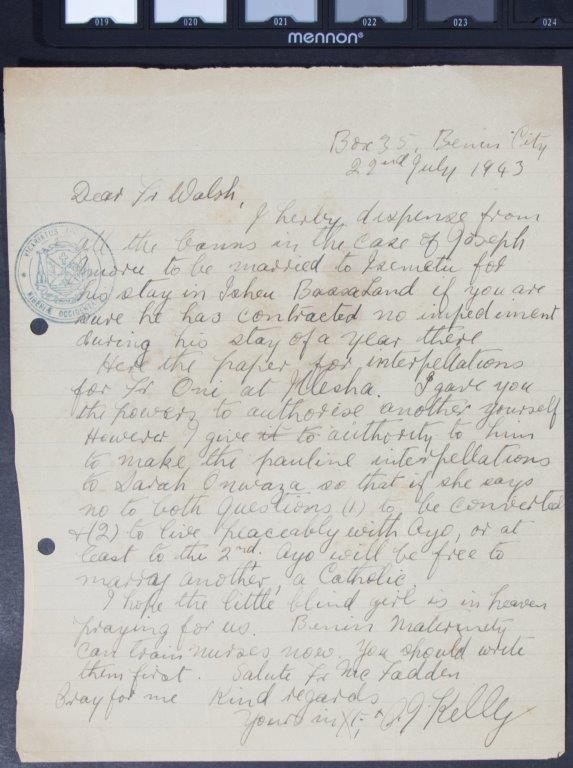 019 020 021 022 023 024
mennon®
Box 35, Benin City
22nd July 1943
Dear Fr Walsh,
I herby dispense from
all the banns in the case of Joseph
to be married to Isemetu for
his stay in Isheu Bassaland if you are
sure he has contracted no impediment
during his stay of a year there
Here the paper for interpellations
for Fr Oni at Ilesha. I gave you
the powers to authorise another yourself
However I give it to authority to him
to make the pauline interpellations
to Sarah Onwaza so that if she says
no to both questions (1) to be converted
+(2) to live peaceably with Ayo, or at
least to the 2nd. Ayo will be free to
marray another, a Catholic.
I hope the little blind girl is in heaven
praying for us. Benin Maternity
can train nurses now. You should write
them first. Salute Fr McFadden
Pray for me Kind regards
Yours in Xt, + P.J. Kelly
VICARIATUS
NIGERIÆ OCCIDENT